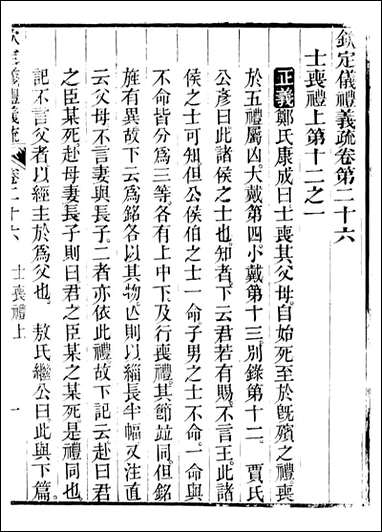 欽定儀禮義疏卷第二十六
士喪禮上第十二之一
正義鄭氏康成曰士喪其父母自始死至於旣殯之禮喪
於五禮屬凶大戴第四小戴第十三別錄第十二　賈氏
公彥曰此諸侯之士也知者下云君若有賜不言王此諸
侯之士可知但公侯伯之士一命子男之士不命一命與
不命皆分爲三等各有上中下及行喪禮其節竝同但銘
旌有異故下云爲銘各以其物亾則以緇長半幅又注直
云父母不言妻與長子二者亦依此禮故下記云赴曰君
之臣某死赴母妻長子則曰君之臣某之某死是禮同也
記不言父者以經主於爲父也　敖氏繼公曰此與下篇
欽定儀禮義疏
卷二十六
士喪禮上
一